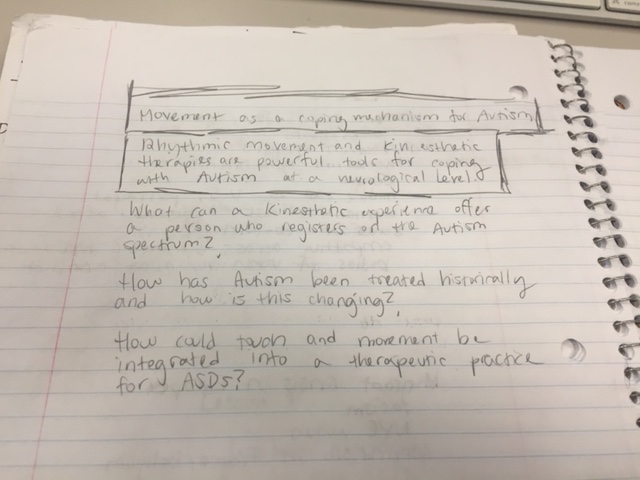 Movement as a coping mechanism for Autism
Rhythmic movement and Kinesthetic
therapies are powerful tools for coping
with Autism at a neurological level
What can a Kinesthetic experience offer
a person who registers on the Autism
spectrum?
How has Autism been treated historically
and how is this changing?
How could touch and movement be
integrated into a therapeutic practice
for ASDs?